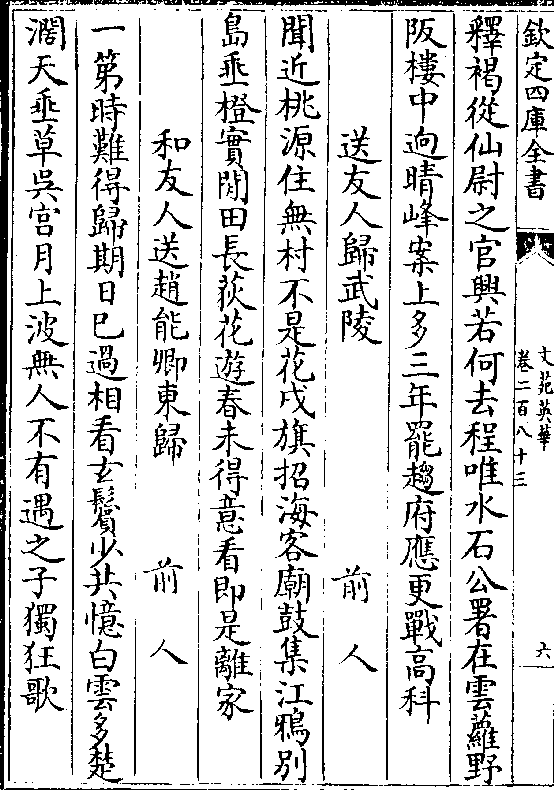 欽定四庫全書
文苑英華
卷二百八十三
六
釋褐從仙尉之官興若何去程唯水石公署在雲蘿野
阪樓中逈晴峰案上多三年罷趨府應更戰高科
送友人歸武陵 前人
聞近桃源住無村不是花戍旗招海客廟鼓集江鴉別
島垂橙實閒田長荻花遊春未得意看即是離家
和友人送趙能卿東歸 前人
一第時難得歸期日已過相看玄鬢少共憶白雲多楚
濶天垂草吳宫月上波無人不有遇之子獨狂歌